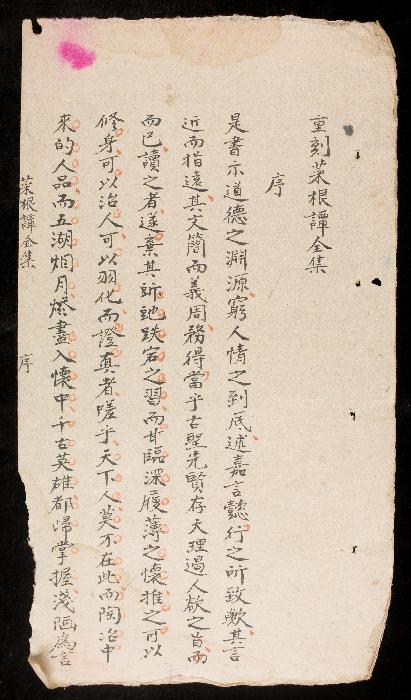 重刻菜根譚全集
序
是書示道德之淵源窮人情之到底述嘉言懿行之所致歟其言
近而指遠其文簡而義周務得當乎古聖先賢存天理遏人欲之旨而
而已讀之者遂棄其跌宕之習而甘臨深履薄之懷推之可以
修身可以治人可以羽化而證真者嗟乎天下人莫不在此而陶冶中
來的人品而五湖烟月盡入懷中千古英雄都歸掌握淺陋為言
菜根譚全集 序